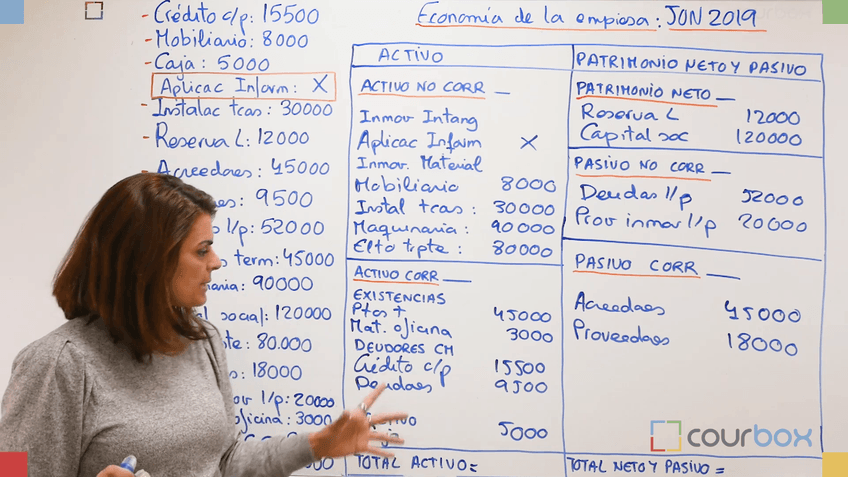 Economía de la empresa: JUN 2019
- Crédito c/p: 15500
- Mobiliario: 8000
- Caja: 5000
Aplicac Inform: X
- Instalac tcas: 30000
- Reserva L: 12000
- Acreedores: 45000
9500
l/p: 52000
term: 45000
90000
social: 120000
80.000
18000
l/p: 20000
oficina: 3000
ACTIVO
ACTIVO NO CORR
Inmov Intang
Aplicac Inform X
Inmov. Material
Mobiliario 8000
Instal tcas: 30000
Maquinaria: 90000
Elto trpte: 80000
ACTIVO CORR
EXISTENCIAS
Ptos t 45000
Mat. oficina 3000
DEUDORES CM
Crédito c/p 15500
Deudores 9500
5000
TOTAL ACTIVO=
PATRIMONIO NETO Y PASIVO
PATRIMONIO NETO
Reserva L 12000
Capital soc 120000
PASIVO NO CORR
Deudas l/p 52000
Prov inmov l/p 20000
PASIVO CORR
Acreedores 45000
Proveedores 18000
TOTAL NETO Y PASIVO=
courbox